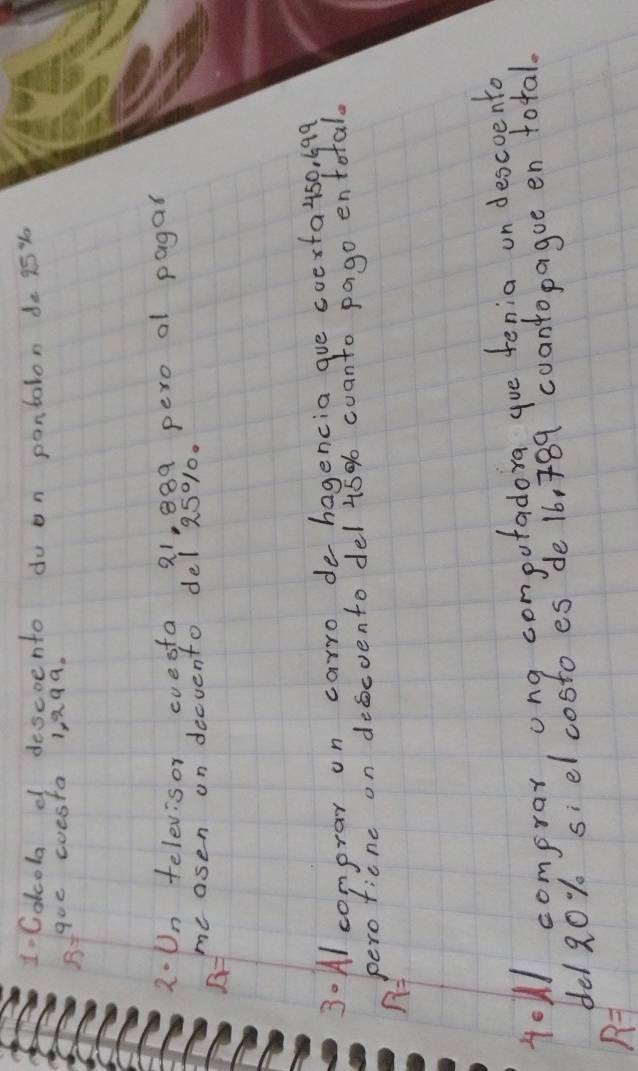 1. Calcola el descoento du un pantalon de 25%
que cuesta 1,299.
R=
2. Un televisor cuesta 21,889 pero al pagar
me asen un decuento del 25%.
R=
3. Al comprar un carro de hagencia que cuexta 450,699
pero tiene un descuento del 45% cuanto pago en total.
R=
4. Al comprar una computadora que tenia un descuento
del 20% si el costo es de 16,789 cuanto pague en total.
R=